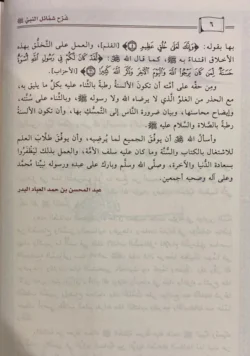 شرح شمائل النبي ﷺ
٦
بها بقوله: ﴿وَإِنَّكَ لَعَلَىٰ خُلُقٍ عَظِيمٍ ۝﴾ [القلم]، والعمل على التخلُّق بهذه
الأخلاق اقتداءً به ﷺ، كما قال الله: ﴿لَقَدْ كَانَ لَكُمْ فِي رَسُولِ اللَّهِ أُسْوَةٌ
حَسَنَةٌ لِمَنْ كَانَ يَرْجُو اللَّهَ وَالْيَوْمَ الْآخِرَ وَذَكَرَ اللَّهَ كَثِيرًا ۝﴾ [الأحزاب].
ومن حقِّه على أمَّته أن تكون الألسنةُ رطبةً بالثناء عليه بكلِّ ما يليق به،
مع الحذر من الغلوِّ الذي لا يرضاه الله ولا رسوله ﷺ، وبالثناء على سنَّته،
وإيضاح محاسنها، وبيان ضرورة الناس إلى التمسُّك بها، وأن تكون الألسنة
رطبةً بالصلاة والسلام عليه ﷺ.
وأسأل الله أن يوفق الجميع لما يُرضيه، وأن يوفق طلَّاب العلم
للاشتغال بالكتاب والسنَّة وما كان عليه سلف الأمَّة، والعمل بذلك ليَظفَروا
بسعادة الدُّنيا والآخرة، وصلى الله وسلم وبارك على عبده ورسوله نبيِّنا محمَّد
وعلى آله وصحبه أجمعين.
عبد المحسن بن حمد العباد البدر